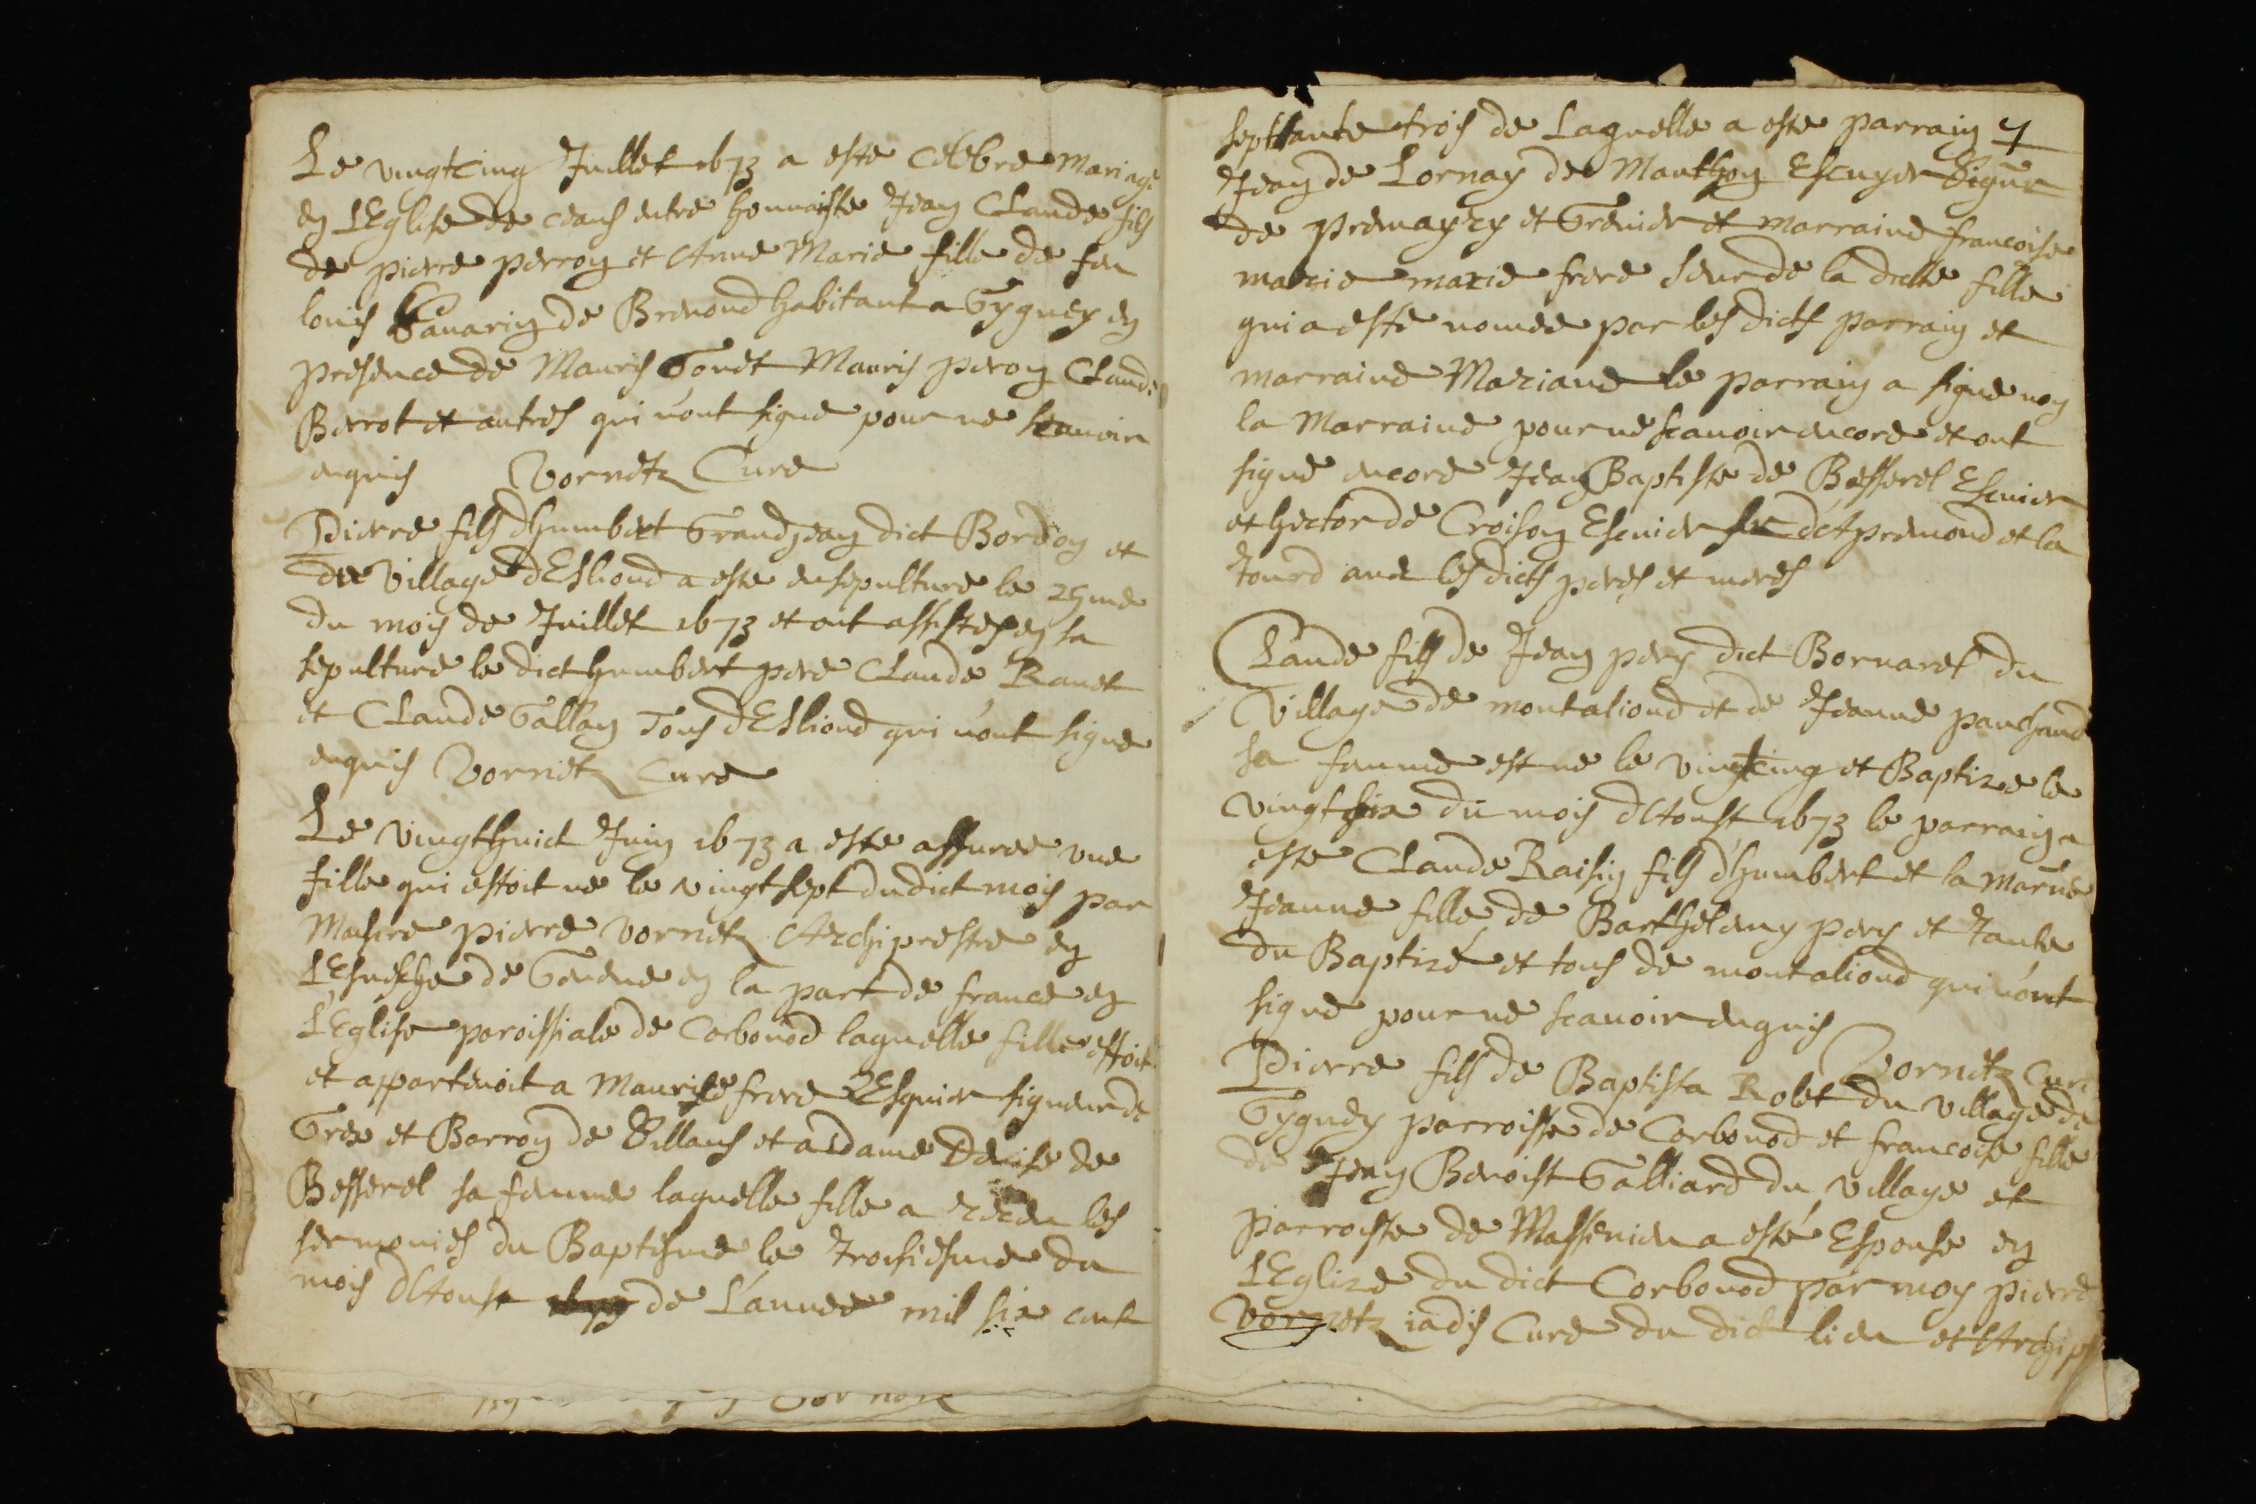 Le vingtcinq Juillet 1673 a este celebre Mariage
en LEglise de ceans entre honnaiste Jean Claude fils
de pierre perron et Anne Marie fille de feu
louis Sauarin de Brenond habitant a Gygnex en
presence de Mauris Gonet Mauris peron Claude
Berrot et autres qui n'ont signe pour ne scauoir
enquis Vornetz Cure
Pierre fils dhumbert Grandjean dict Bordon et
du Village dEsliond a este ensepulture le 29me
du mois de Juillet 1673 et ont assistes en sa
sepulture le dict humbert pere Claude Ranet
et Claude Gallay Tous dEsliond qui n'ont signe
enquis Vornetz Cure
Le vingthuict Juin 1673 a este assuree une
fille qui estoit ne le vingt sept dudict mois par
Messire pierre Vornetz Archiprestre en
LEsuesche de Geneue en la part de france en
L'Eglise paroissiale de Corbonod laquelle fille estoit
et appartenoit a Maurise frere Esquier signeur de
Grex et Barron de Villans et a dame Denise de
Besserel sa femme laquelle fille a receu les
sermonies du Baptesme le troisiesme du
mois dAoust de L'annee mil six cent
septtante trois de Laquelle a este parrain 7
Jean de Lornay de Manthon Escuyer Sigur
de premayzy et Grenier et marraine francoise
marie marie frere seur de la dicte fille
qui a este nomee par les dicts parrain et
marraine Mariane le parrain a signe non
la Marraine pour ne scauoir encore et ont
signe encore Jean Baptiste de Besserel Escuier
et hector de Croison Escuier sr d'Apremond et la
Tourd auec les dicts peres et meres
Claude fils de Jean pery dict Bornarel du
Village de montaliond et de Jeanne panchaud
sa femme est ne le vingtcinq et Baptize le
vingt six du mois dAoust 1673 le parrain a
este Claude Raisin fils d'humbert et la marne
Jeanne fille de Barthelemy pery et Tante
du Baptizé et tous de montaliond qui n'ont
signe pour ne scauoir enquis
Vornetz Cure
Pierre fils de Baptista Rolet du Village de
Gygnex parroisse de Corbonod et francoise fille
de Jean Benoist Galliard du village et
parroisse de Massenien a esté Espouse en
LEglize du dict Corbonod par moy pierre
Vornetz iadis Cure du dict lieu et Archip